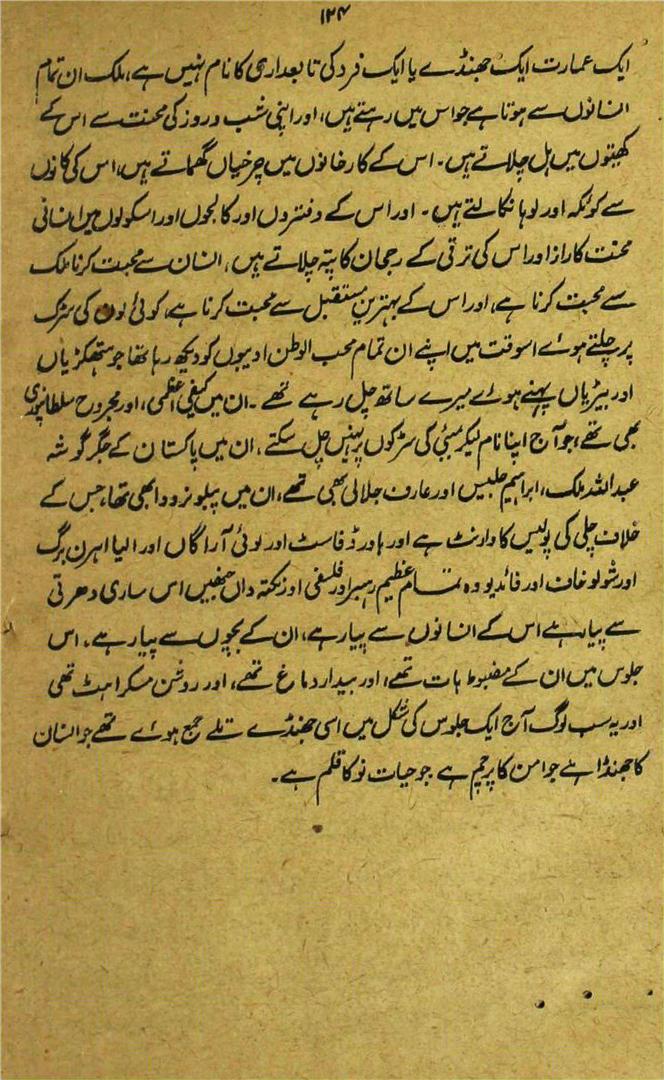 ۱۲۴
ایک عمارت ایک جھنڈے یا ایک فرد کی تابعداری کا نام نہیں ہے، ملک ان تمام
انسانوں سے ہوتا ہے جو اس میں رہتے ہیں، اور اپنی شب و روز کی محنت سے اس کے
کھیتوں میں ہل چلاتے ہیں۔ اس کے کارخانوں میں چرخیاں گھماتے ہیں، اس کی کانوں
سے کوئلہ اور لوہا نکالتے ہیں۔ اور اس کے دفتروں اور کالجوں اور اسکولوں میں انسانی
محنت کا راز اور اس کی ترقی کے رجحان کا پتہ چلاتے ہیں، انسان سے محبت کرنا ملک
سے محبت کرنا ہے، اور اس کے بہترین مستقبل سے محبت کرنا ہے، کوئی لون کی سڑک
پر چلتے ہوئے اسوقت میں اپنے ان تمام محب الوطن ادیبوں کو دیکھ رہا تھا جو ہتھکڑیاں
اور بیڑیاں پہنے ہوئے میرے ساتھ چل رہے تھے۔ ان میں کیفی اعظمی، اور مجروح سلطانپوری
بھی تھے، جو آج اپنا نام لیکر بمبئی کی سڑکوں پر نہیں چل سکتے، ان میں پاکستان کے جگر گوشہ
عبداللہ ملک، ابراہیم جلیس اور عارف جلالی بھی تھے، ان میں پبلو نرودا بھی تھا، جس کے
خلاف چلی کی پولیس کا وارنٹ ہے اور ہاورڈ فاسٹ اور لوئی آراگاں اور الیا اہرن برگ
اور شولوخان اور فادیو وہ تمام عظیم رہبر اور فلسفی اور نکتہ داں جنھیں اس ساری دھرتی
سے پیار ہے اس کے انسانوں سے پیار ہے، ان کے بچوں سے پیار ہے، اس
جلوس میں ان کے مضبوط ہات تھے، اور بیدار دماغ تھے، اور روشن مسکراہٹ تھی
اور یہ سب لوگ آج ایک جلوس کی شکل میں اسی جھنڈے تلے جمع ہوئے تھے جو انسان
کا جھنڈا ہے جو امن کا پرچم ہے جو حیات نو کا قلم ہے۔